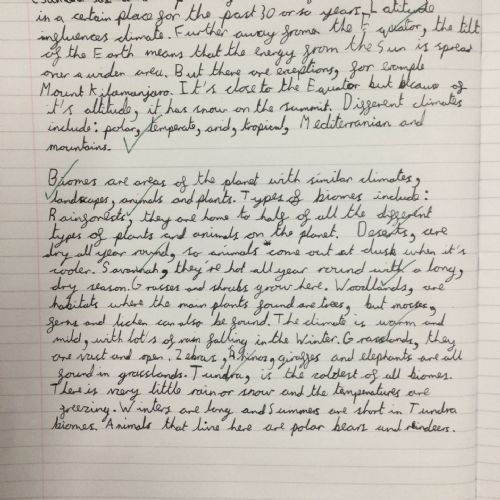 in a certain place for the past 30 or so years. Latitude
influences climate. Further away from the Equator, the tilt
of the Earth means that the energy from the Sun is spread
over a wider area. But there are exeptions, for example
Mount Kilamanjaro. It's close to the Equator but becaus of
it's altitude, it has snow on the summit. Different climates
include: polar, temperate, arid, tropical, Mediterranian and
mountains.
Biomes are areas of the planet with similar climates,
landscapes, animals and plants. Types of biomes include:
Rainforests, they are home to half of all the different
types of plants and animals on the planet. Deserts, are
dry all year round, so animals come out at dusk when it's
cooler. Savannah, they're hot all year round with a long,
dry season. Grasses and shrubs grow here. Woodlands, are
habitats where the main plants found are trees, but mosses,
ferns and lichen can also be found. The climate is warm and
mild, with lot's of rain falling in the Winter. Grasslands, they
are vast and open. Zebras, Rhinos, giraffes and elephants are all
found in grasslands. Tundra, is the coldest of all biomes.
There is very little rain or snow and the temperatures are
freezing. Winters are long and Summers are short in Tundra
biomes. Animals that live here are polar bears and reindeers.